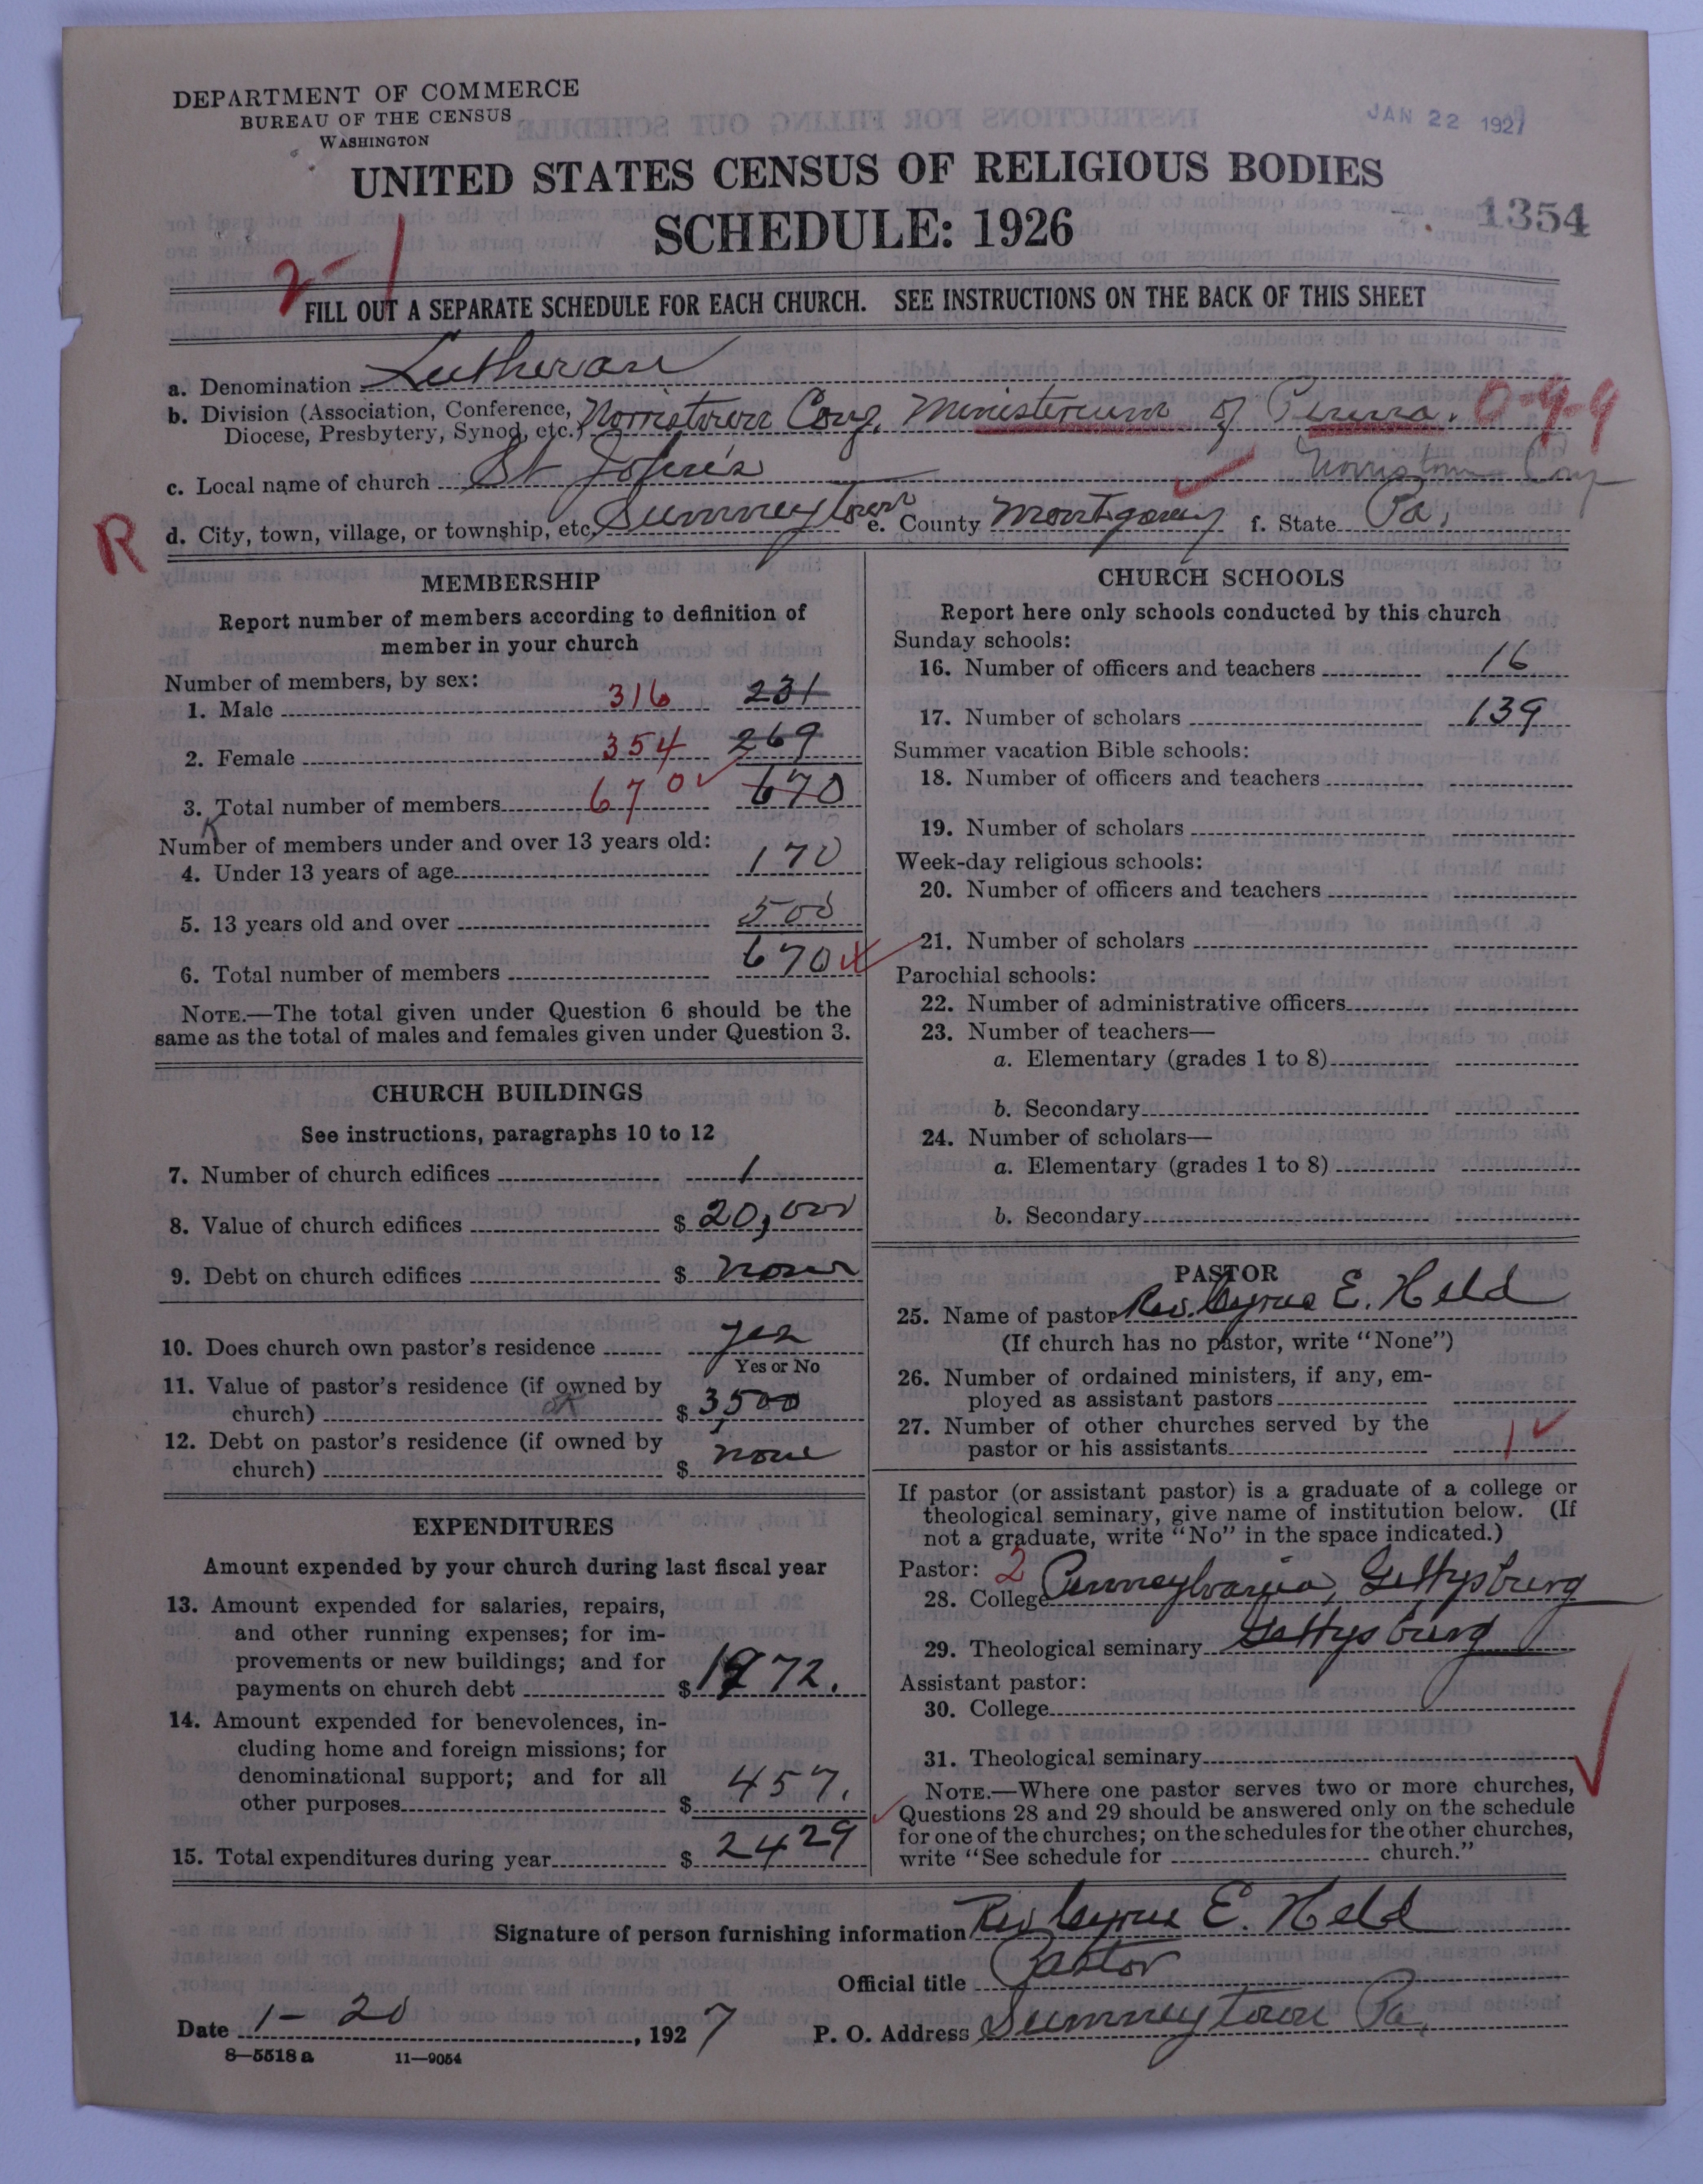 DEPARTMENT OF COMMERCE
BUREAU OF THE CENSUS
WASHINGTON
JAN 22 1927
UNITED STATES CENSUS OF RELIGIOUS BODIES
SCHEDULE: 1926
1354
2-1
FILL OUT A SEPARATE SCHEDULE FOR EACH CHURCH. SEE INSTRUCTIONS ON THE BACK OF THIS SHEET
a. Denomination Lutheran
b. Division (Association, Conference, Diocese, Presbytery, Synod, etc.) Norristown Conf. Ministerium of Penna. 0-9-9
c. Local name of church St John's Norristown Conf
R
d. City, town, village, or township, etc. Sumneytown e. County Montgomery f. State Pa.
MEMBERSHIP
Report number of members according to definition of
member in your church
Number of members, by sex:
1. Male 316 231
2. Female 354 269
3. Total number of members 670 670
Number of members under and over 13 years old:
4. Under 13 years of age 170
5. 13 years old and over 500
6. Total number of members 670
NOTE.—The total given under Question 6 should be the
same as the total of males and females given under Question 3.
CHURCH BUILDINGS
See instructions, paragraphs 10 to 12
7. Number of church edifices 1
8. Value of church edifices $ 20,000
9. Debt on church edifices $ none
10. Does church own pastor's residence yes
Yes or No
11. Value of pastor's residence (if owned by
church) OK $ 3,500
12. Debt on pastor's residence (if owned by
church) $ none
EXPENDITURES
Amount expended by your church during last fiscal year
13. Amount expended for salaries, repairs,
and other running expenses; for im-
provements or new buildings; and for
payments on church debt $ 1972.
14. Amount expended for benevolences, in-
cluding home and foreign missions; for
denominational support; and for all
other purposes $ 457.
15. Total expenditures during year $ 2429
CHURCH SCHOOLS
Report here only schools conducted by this church
Sunday schools:
16. Number of officers and teachers 16
17. Number of scholars 139
Summer vacation Bible schools:
18. Number of officers and teachers
19. Number of scholars
Week-day religious schools:
20. Number of officers and teachers
21. Number of scholars
Parochial schools:
22. Number of administrative officers
23. Number of teachers—
a. Elementary (grades 1 to 8)
b. Secondary
24. Number of scholars—
a. Elementary (grades 1 to 8)
b. Secondary
PASTOR
25. Name of pastor Rev. Cyrus E. Held
(If church has no pastor, write "None")
26. Number of ordained ministers, if any, em-
ployed as assistant pastors
27. Number of other churches served by the
pastor or his assistants 1
If pastor (or assistant pastor) is a graduate of a college or
theological seminary, give name of institution below. (If
not a graduate, write "No" in the space indicated.)
Pastor: 2
28. College Pennsylvania, Gettysburg
29. Theological seminary Gettysburg
Assistant pastor:
30. College
31. Theological seminary
NOTE.—Where one pastor serves two or more churches,
Questions 28 and 29 should be answered only on the schedule
for one of the churches; on the schedules for the other churches,
write "See schedule for church."
Signature of person furnishing information Rev Cyrus E. Held
Official title Pastor
Date 1-20, 1927 P. O. Address Sumneytown Pa.
8—5518 a 11—9054